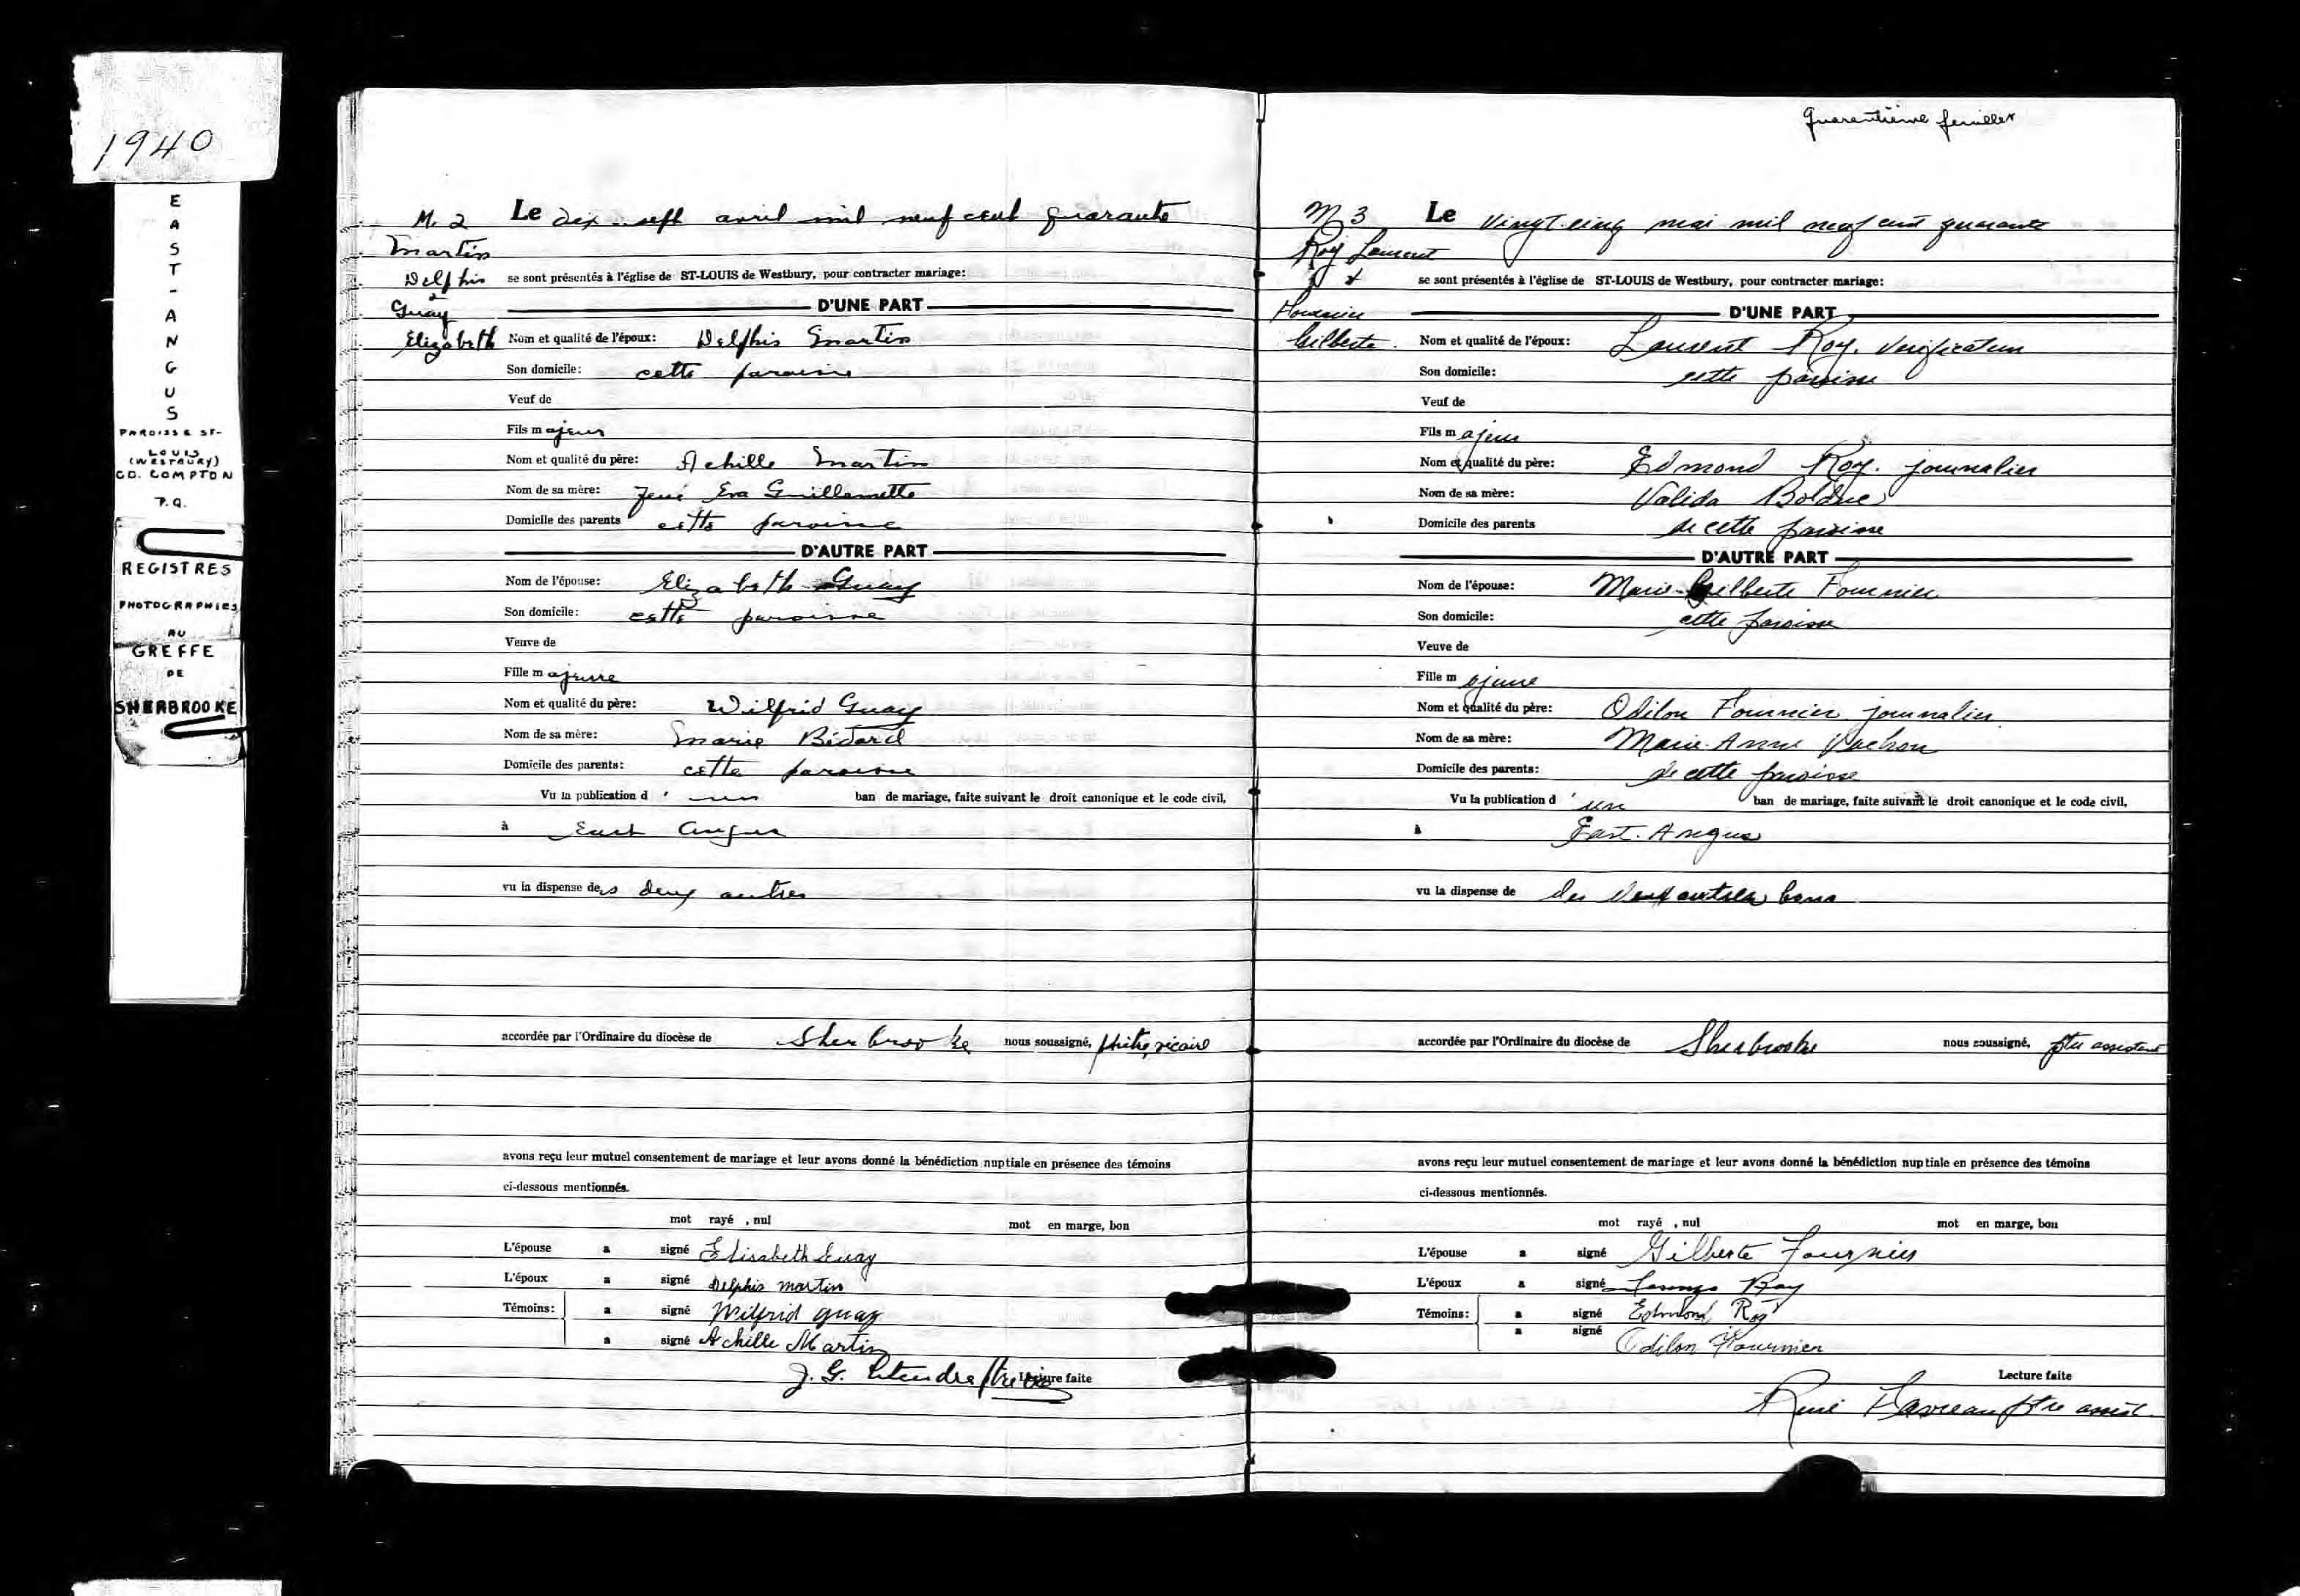 1940
EAST-ANGUS
PAROISSE ST-
LOUIS
(WESTBURY)
CO. COMPTON
P.Q.
REGISTRES
PHOTOGRAPHIÉS
AU
GREFFE
DE
SHERBROOKE
M. 2 Le dix-sept avril mil neuf cent quarante
Martin
Delphis se sont présentés à l'église de ST-LOUIS de Westbury, pour contracter mariage:
&
Guay D'UNE PART
Elizabeth Nom et qualité de l'époux: Delphis Martin
Son domicile: cette paroisse
Veuf de
Fils majeur
Nom et qualité du père: Achille Martin
Nom de sa mère: Eva Guillemette
Domicile des parents cette paroisse
D'AUTRE PART
Nom de l'épouse: Elizabeth Guay
Son domicile: cette paroisse
Veuve de
Fille majeure
Nom et qualité du père: Wilfrid Guay
Nom de sa mère: Marie Bédard
Domicile des parents: cette paroisse
Vu la publication d'un ban de mariage, faite suivant le droit canonique et le code civil,
à East Angus
vu la dispense des deux autres
accordée par l'Ordinaire du diocèse de Sherbrooke nous soussigné, prêtre, vicaire
avons reçu leur mutuel consentement de mariage et leur avons donné la bénédiction nuptiale en présence des témoins
ci-dessous mentionnés.
mot rayé , nul mot en marge, bon
L'épouse a signé Elisabeth Guay
L'époux a signé Delphis Martin
Témoins: a signé Wilfrid Guay
a signé Achille Martin
J. G. Letendre ptre vic Lecture faite
Quarantième feuillet
M 3 Le vingt-cinq mai mil neuf cent quarante
Roy Laurent
& se sont présentés à l'église de ST-LOUIS de Westbury, pour contracter mariage:
Fournier D'UNE PART
Gilberte. Nom et qualité de l'époux: Laurent Roy. Verificateur
Son domicile: cette paroisse
Veuf de
Fils majeur
Nom et qualité du père: Edmond Roy. journalier
Nom de sa mère: Valida Bolduc
Domicile des parents de cette paroisse
D'AUTRE PART
Nom de l'épouse: Marie-Gilberte Fournier
Son domicile: cette paroisse
Veuve de
Fille majeure
Nom et qualité du père: Odilon Fournier journalier.
Nom de sa mère: Marie-Anne Vachon
Domicile des parents: de cette paroisse
Vu la publication d'un ban de mariage, faite suivant le droit canonique et le code civil,
à East-Angus
vu la dispense de des deux autres bans
accordée par l'Ordinaire du diocèse de Sherbrooke nous soussigné, ptre assistant
avons reçu leur mutuel consentement de mariage et leur avons donné la bénédiction nuptiale en présence des témoins
ci-dessous mentionnés.
mot rayé , nul mot en marge, bon
L'épouse a signé Gilberte Fournier
L'époux a signé Roy
Témoins: a signé Edmond Roy
a signé Odilon Fournier
Lecture faite
René ptre assist.